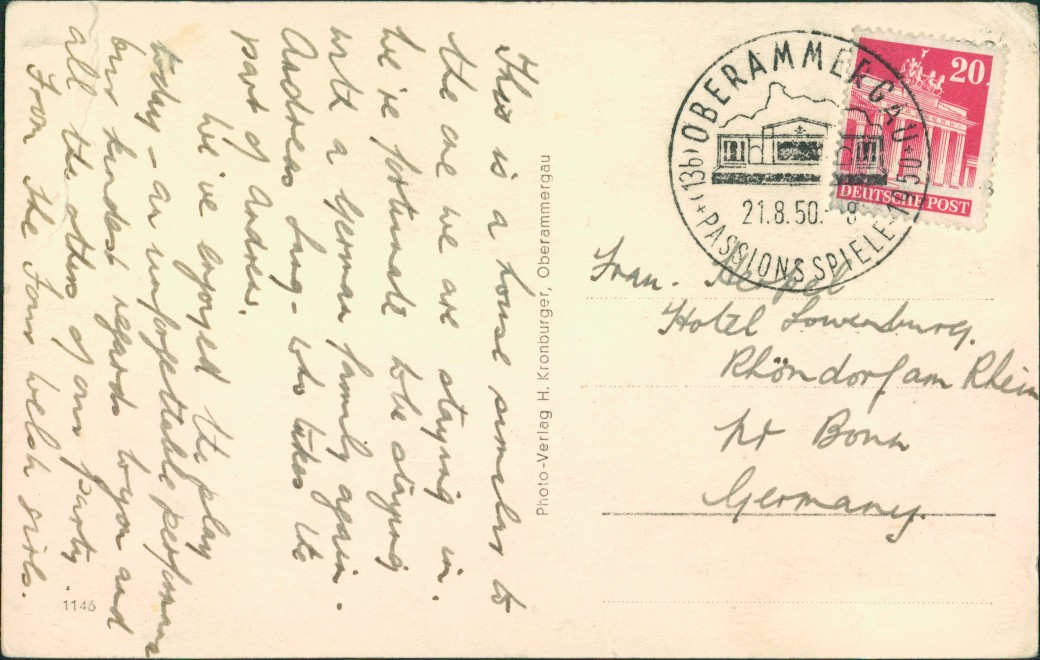 This is a house similar to
the one we are staying in.
We're fortunate to be staying
with a German family again.
Andreas Lang - who takes the
part of Andrew.
We've enjoyed the play
today - an unforgettable performance
Our kindest regards to you and
all the others of our party.
From the Four Welsh Girls.
1146
Photo-Verlag H. Kronburger, Oberammergau
(13b) OBERAMMERGAU
21.8.50.- 8
PASSIONSSPIELE 1950
20
DEUTSCHE POST
Frau.
Hotel Lowenburg.
Rhöndorf am Rhein
Nr Bonn
Germany.